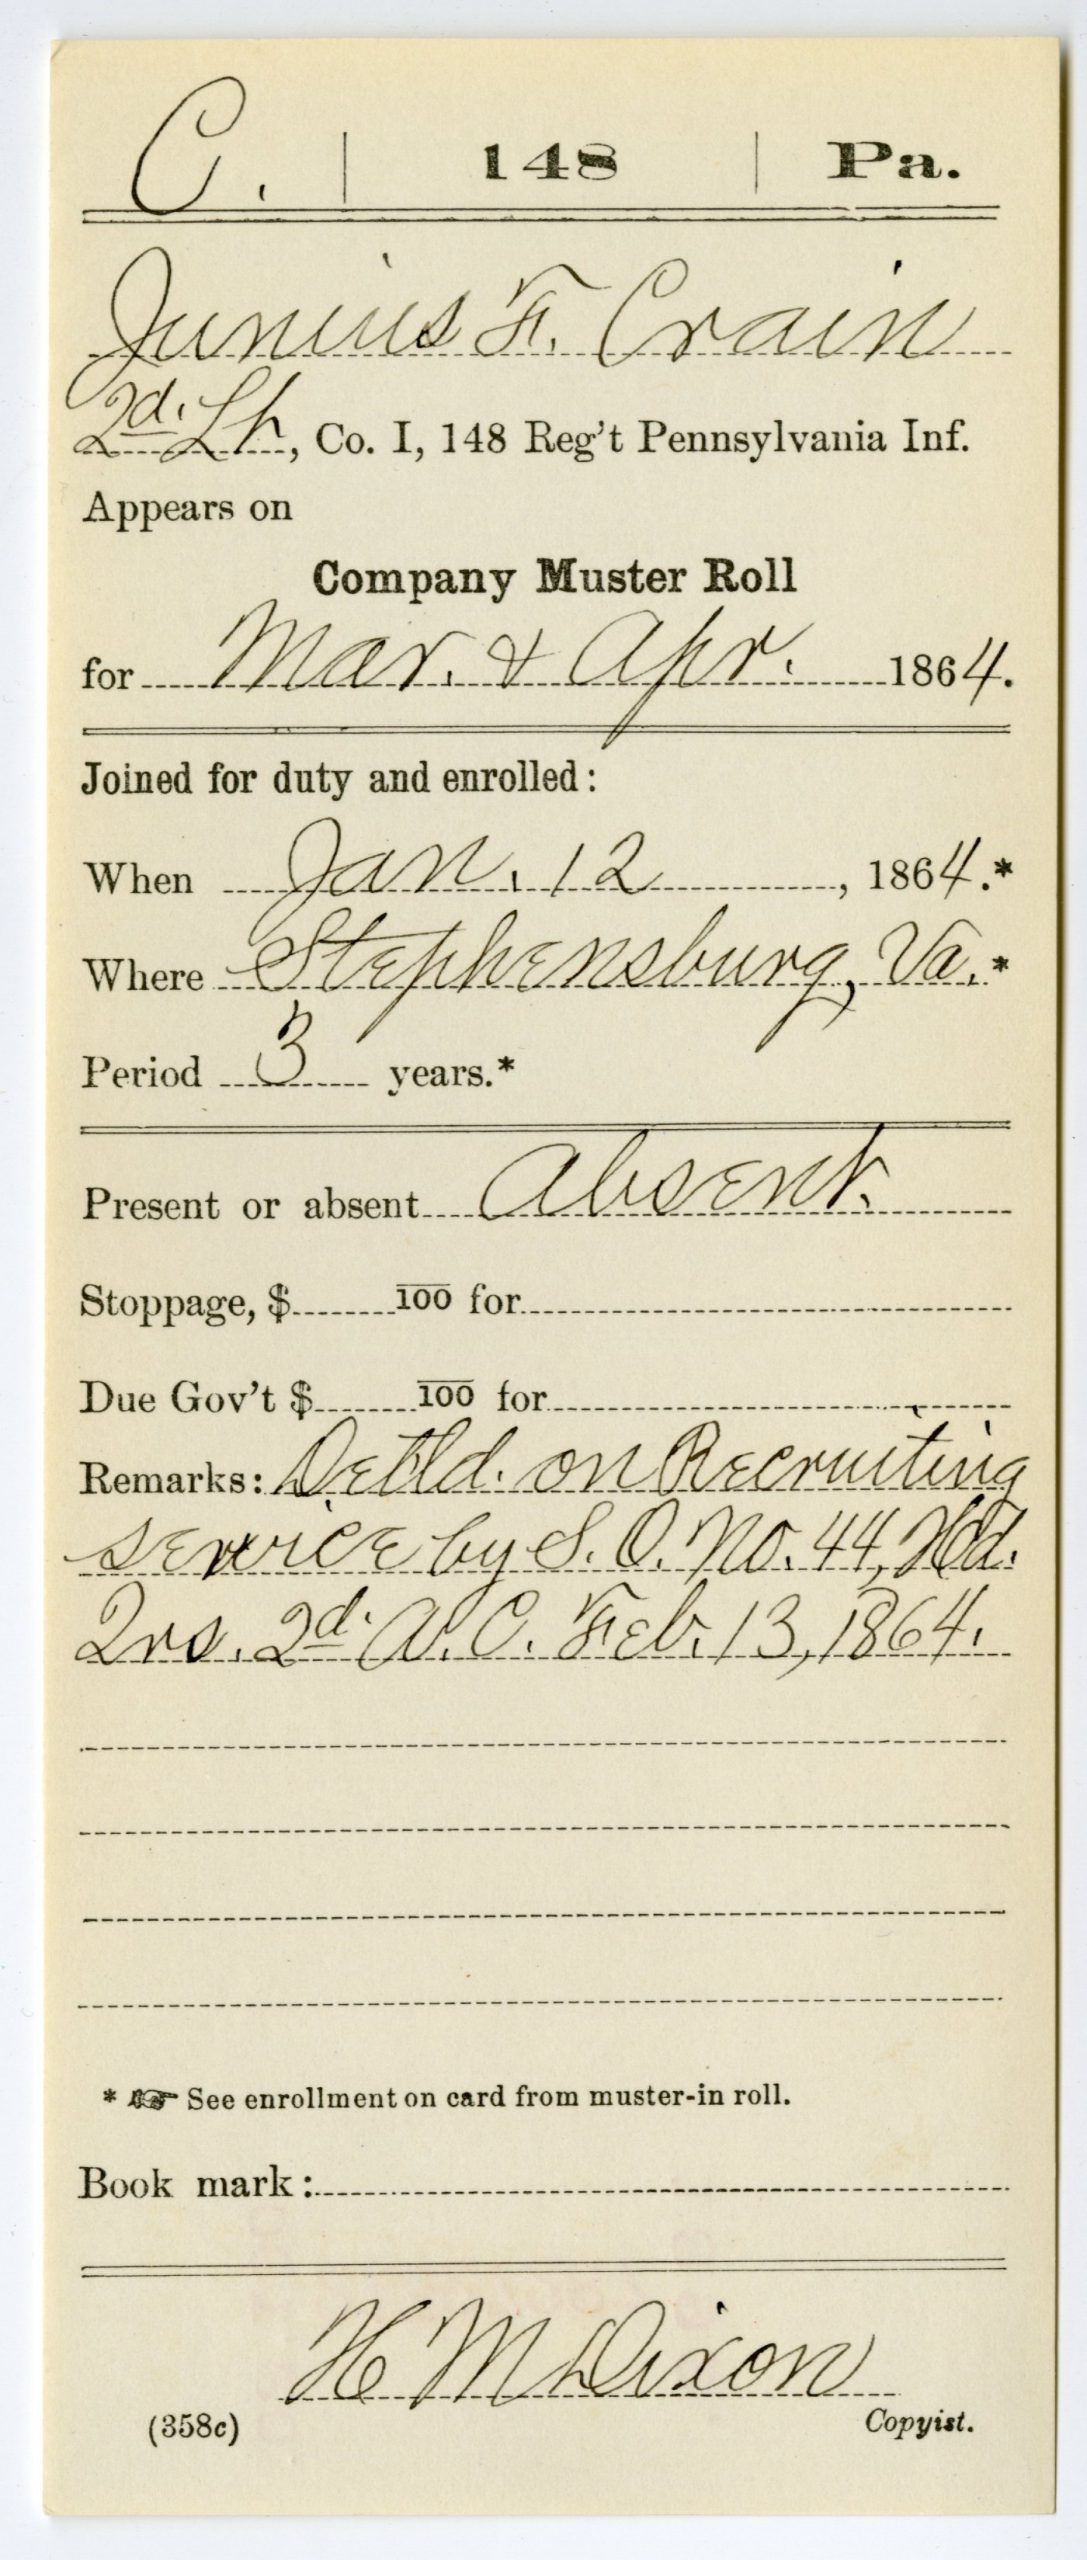 C. | 148 | Pa.
Junius F. Crain
2d. Lt., Co. I, 148 Reg't Pennsylvania Inf.
Appears on
Company Muster Roll
for Mar. & Apr. 1864.
Joined for duty and enrolled:
When Jan. 12, 1864.*
Where Stephensburg, Va.*
Period 3 years.*
Present or absent Absent.
Stoppage, $ 100 for
Due Gov't $ 100 for
Remarks: Detld. on Recruiting
service by S.O. No. 44, Hd.
Qrs. 2d. A.C. Feb. 13, 1864.
* ☞ See enrollment on card from muster-in roll.
Book mark:
H M Dixon
(358c) Copyist.